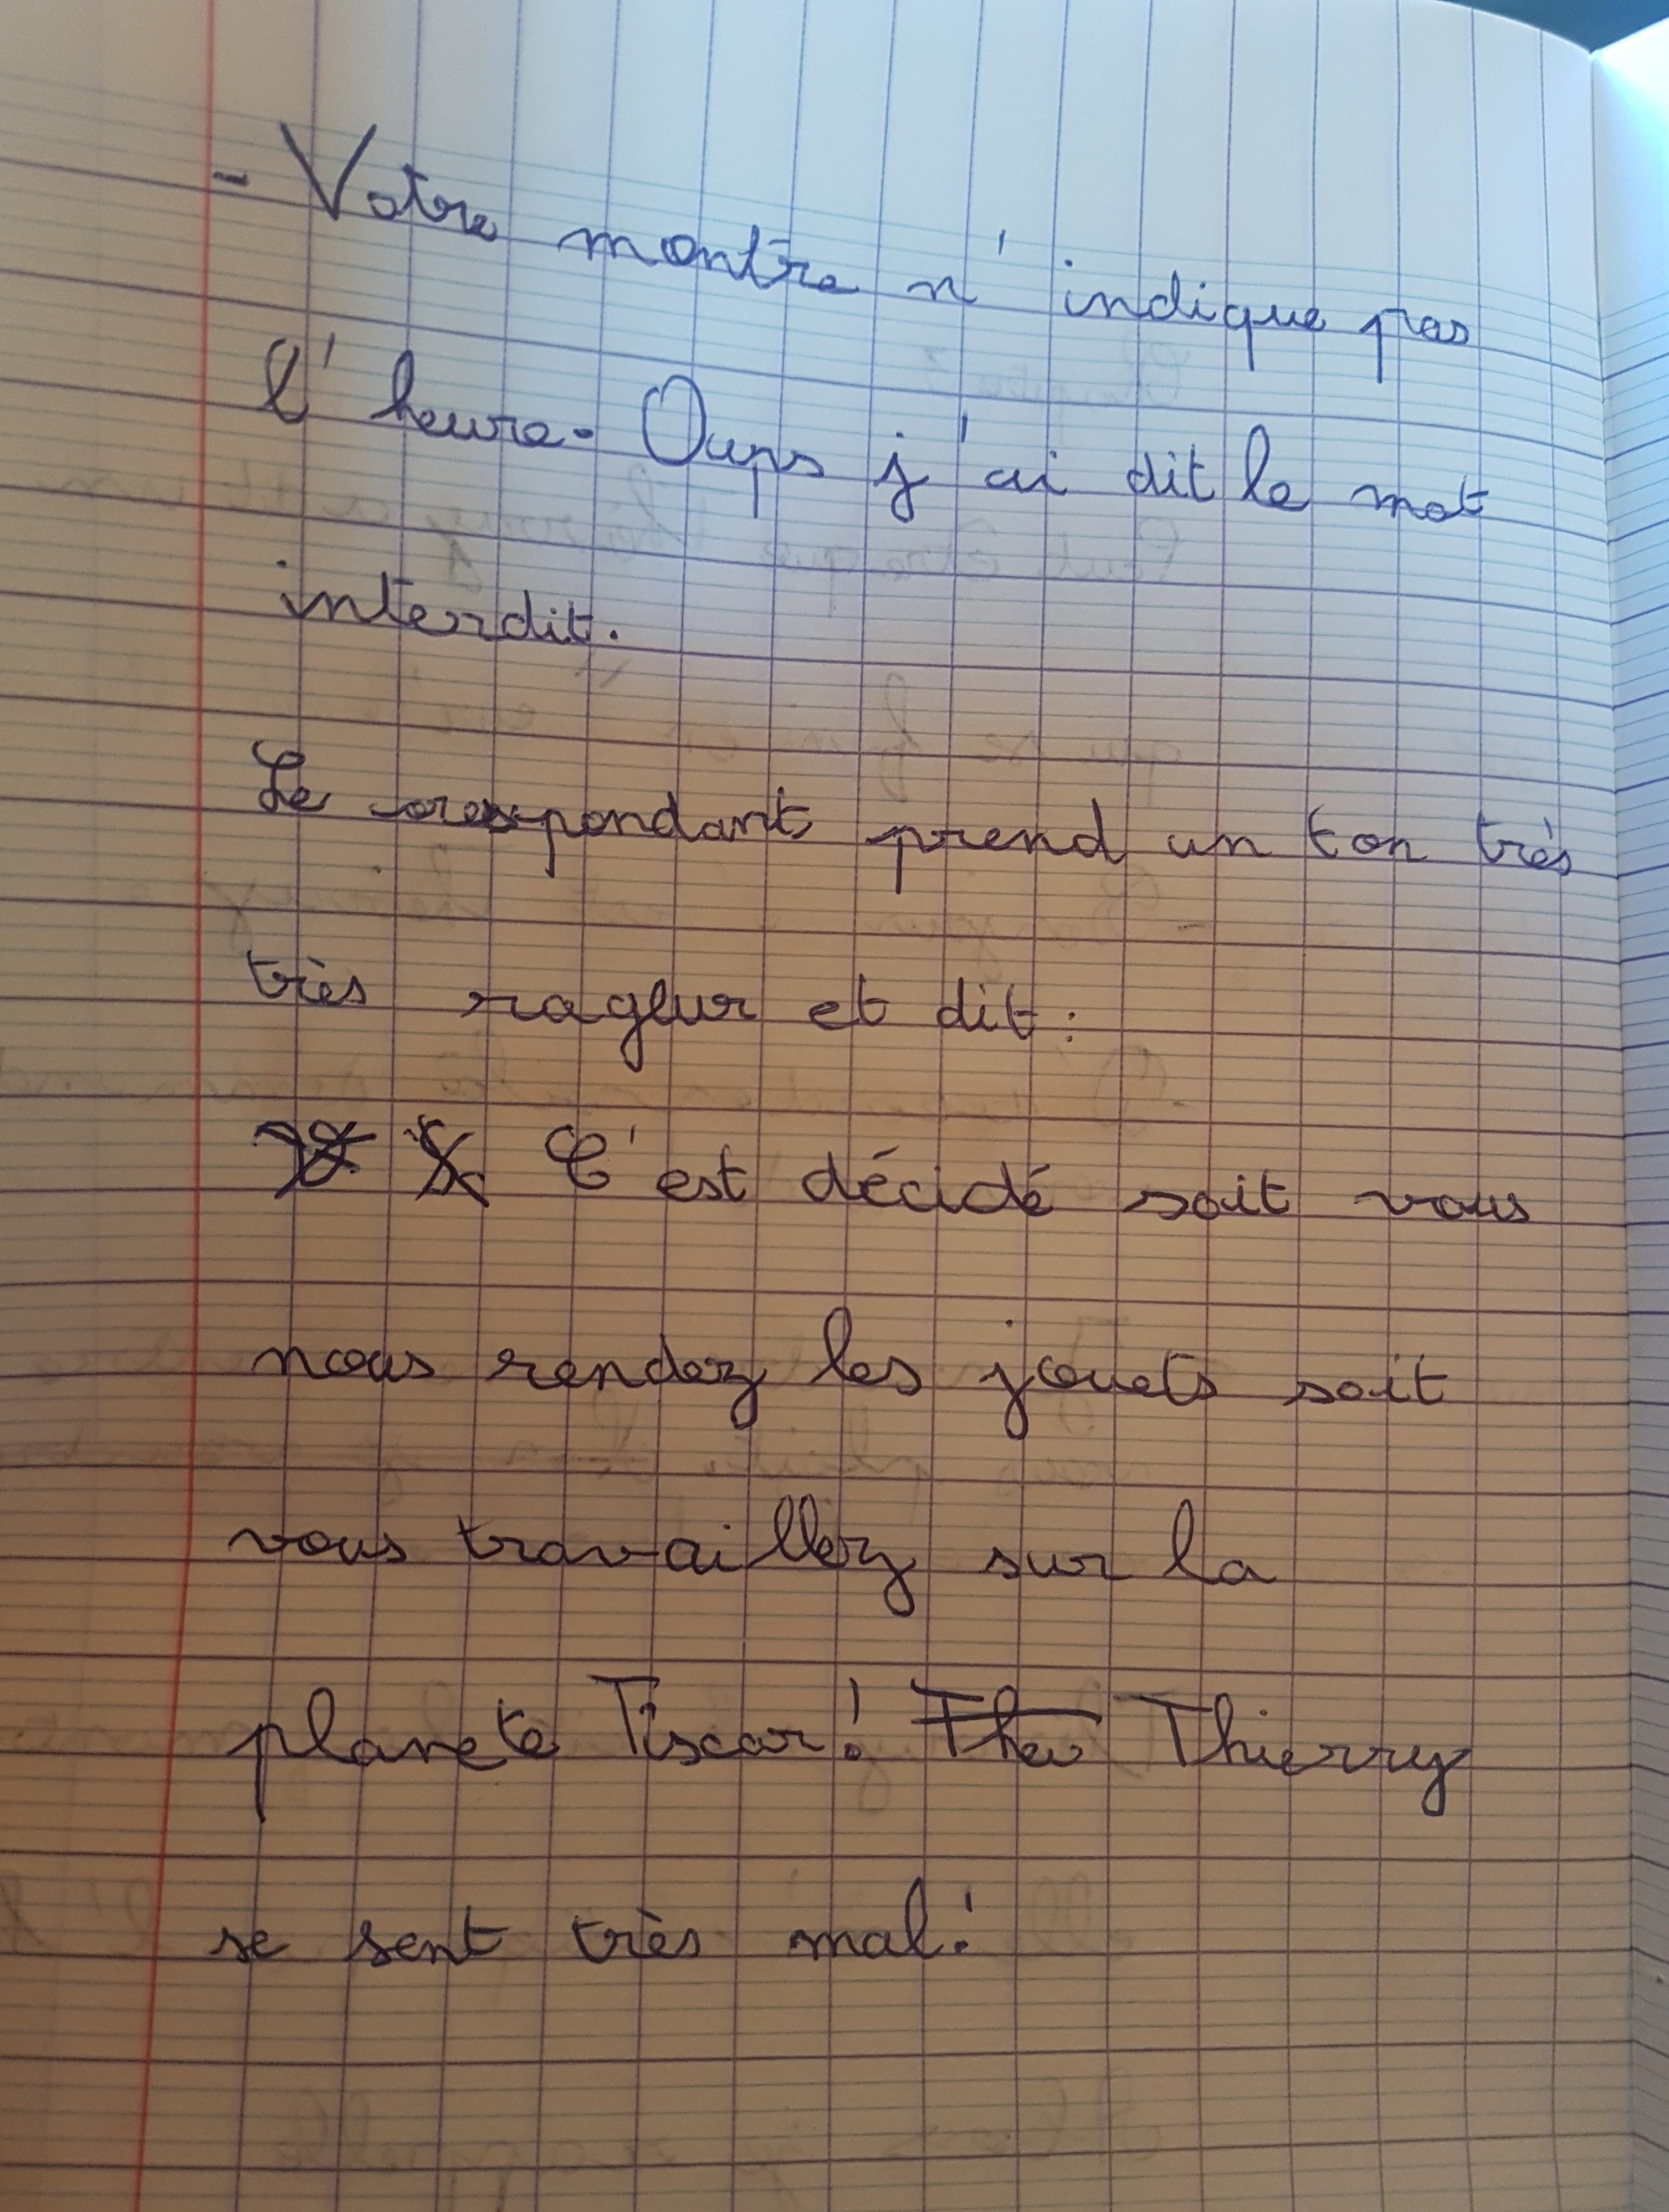 - Votre montre n'indique pas
l'heure. Oups j'ai dit le mot
interdit.
Le corespondant prend un ton très
très rageur et dit :
C'est décidé soit vous
nous rendez les jouets soit
vous travaillez sur la
planete Tiscar ! Theo Thierry
se sent très mal !